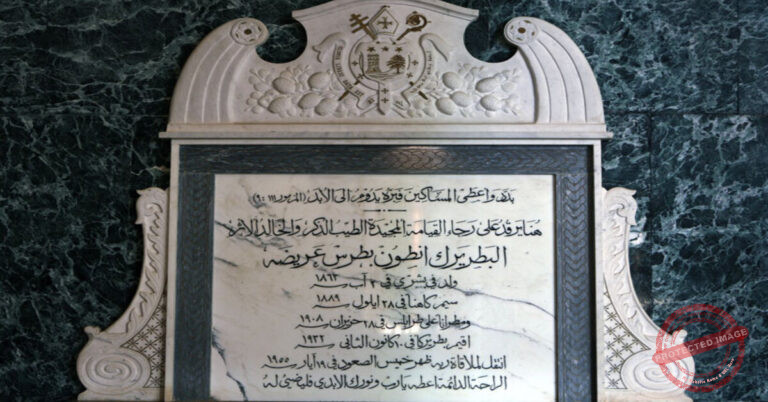 بدد واعطى المساكين فبره يدوم الى الابد (المزمور ١١١: ٩)
هنا يرقد على رجاء القيامة المجيدة الطيب الذكر والخالد الاثر
البطريرك انطون بطرس عريضه
ولد في بشري في ٢ آب سنة ١٨٦٣
سيم كاهنا في ٢٨ ايلول سنة ١٨٨٩
ومطرانا على طرابلس في ٢٨ حزيران سنة ١٩٠٨
اقيم بطريركا في ١٠ كانون الثاني سنة ١٩٣٢
انتقل لملاقاة ربه ظهر خميس الصعود في ١٩ أيار سنة ١٩٥٥
الراحة الدائمة اعطه يا رب ونورك الابدي فليضئ له
PROTECTED IMAGE